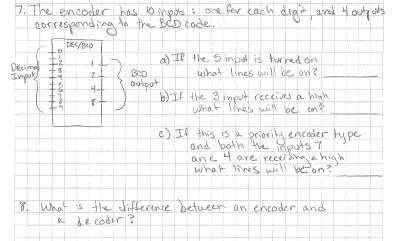 7. The encoder has 10 inputs: one for each digit, and 4 outputs
corresponding to the BCD code.
DEC/BCD
0
1
2
3
4
5
6
7
8
9
1
2
4
8
Decimal
Input
BCD
output
a) If the 5 input is turned on
what lines will be on?
b) If the 3 input receives a high
what lines will be on?
c) If this is a priority encoder type
and both the inputs 7
and 4 are receiving a high
what lines will be on?
8. What is the difference between an encoder and
a decoder?